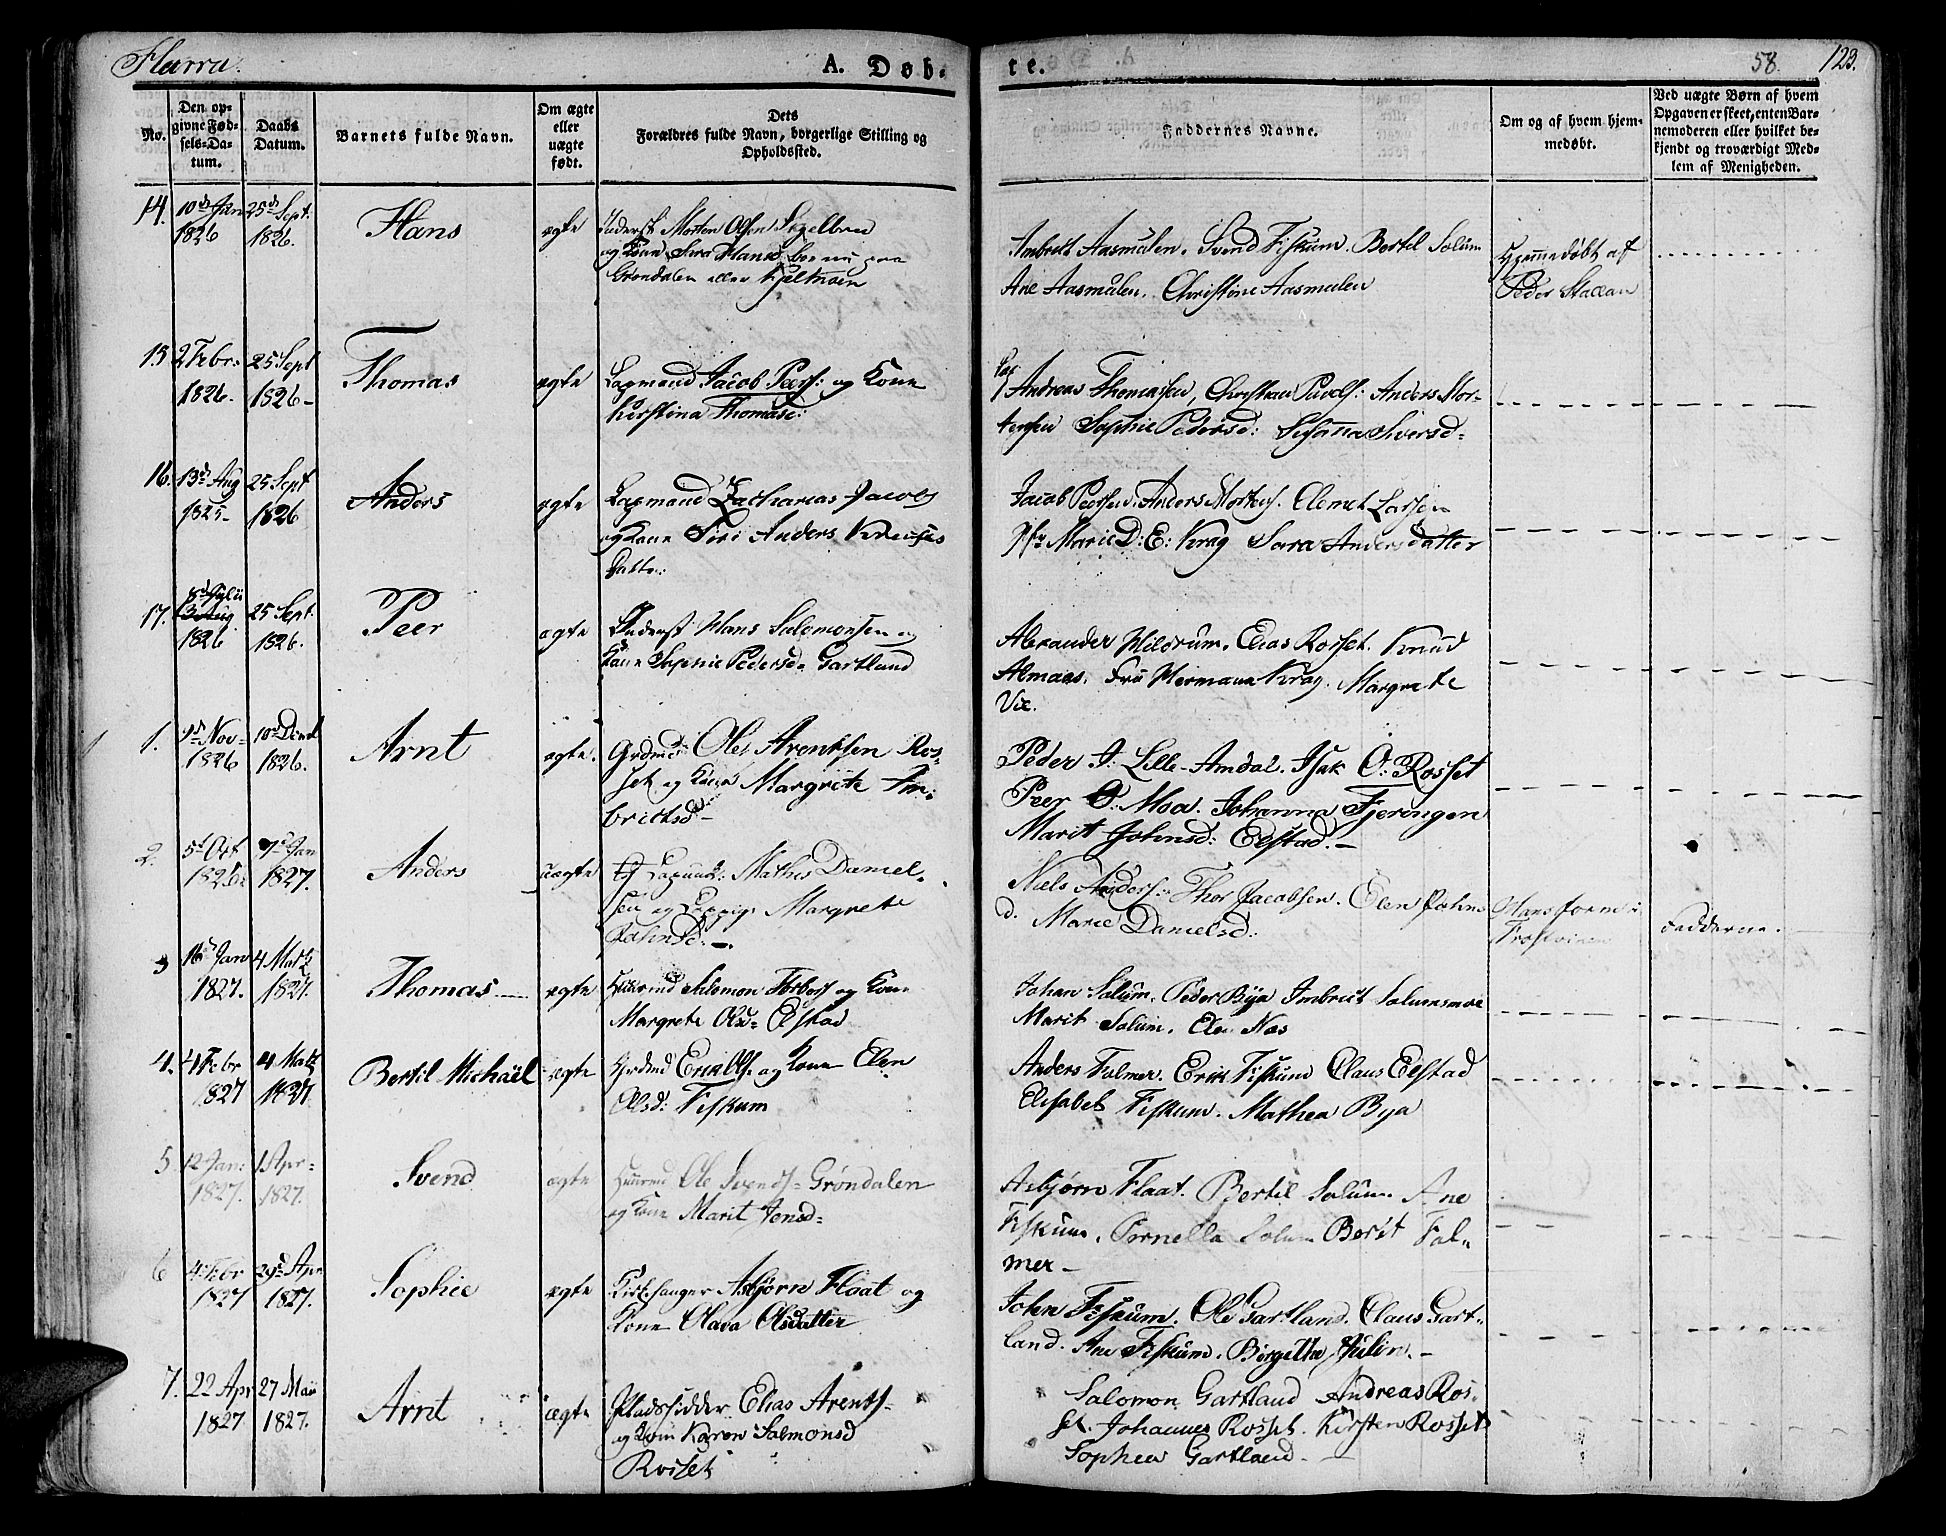 Harra.
A. Døb-
te.
58.
123.
No.
Den op-
givne Fød-
sels-Da-
tum.
Daabs
Datum.
Barnets fulde Navn.
Om ægte
eller
uægte
født.
Dets
Forældres fulde Navn, borgerlige Stilling og
Opholdssted.
Faddernes Navne.
Om og af hvem hjem-
medøbt.
Ved uægte Børn af hvem
Opgaven er skeet, enten Bar-
nemoderen eller hvilket be-
kjendt og troværdigt Med-
lem af Menigheden.
14.
10d Jan
1826
25d Sept.
1826.
Hans
ægte
Inderst Morten Olsen
og Kone Sara Hansd boe nu paa
Grøndalen eller
Ambrit Aasmulen. Svend Fiskum. Bertil Solum
Ane Aasmulen. Christine Aasmulen
Hjemmedøbt af
Peder
15
2 Febr.
1826.
25 Sept
1826-
Thomas
ægte
Lapmand Jacob Peers: og Kone
Kirstina Thomasd:
Lap
Andreas Thomassen, Christian Povels: Anders Mor-
tensen Sophie Pedersd: Susanna Siversd-
16.
13d Aug
1825-
25 Sept
1826
Anders
ægte
Lapmand Zacharias Jacobs
og Kone Siri Anders
Datter
Jacob Peersen. Anders Mortens. Clemet Larsen
Marie D: E: Krag Sara Andersdatter
17.
8d Julii
13 Aug
1826
25 Sept.
1826.
Peer
ægte
Inderst Hans Salomonsen og
Kone Sophie Pedersd- Gartland
Alexander Mildrum. Elias Rosset. Knud
Almaas. Fru Hermana Krag. Margrete
Vie.
1.
9d Nov-
1826
10d
1826.
Arnt
ægte.
Grdmd: Ole Arentsen Ros-
set og Kone Margrete Am-
britsd-
Peder J: Lille-Amdal. Isak O: Rosset
Peer O: Moa. Johanna Fjeringen
Marit Johnsd: Eestad.-
2.
5d
1826
7d Jan
1827.
Anders
uægte
Mathis Daniel-
sen og Margrete
Johnsd:-
Niels Anders: Thor Jacobsen. Elen Johns
d. Marie Danielsd:
Fadderne.
3
16d Jan
1827.
4 Matz
1827.
Thomas
ægte
Huusmd Salomon og Kone
Margrete Olsd- Eestad
Johan Solum. Peder Bya Ambrit Solumsmoe
Marit Solum. Elen Næs
4.
4 Febr
1827
4 Matz
1827
Bertil Michael
ægte
Grdmd Erik Ols. og Kone Elen
Olsd: Fiskum
Anders Folmer. Erik Fiskum Claus Eestad
Elisabet Fiskum. Mathea Bya
5
12 Jan:
1827.
1 Apr-
1827.
Svend
ægte
Huusmd Ole Svends- Grøndalen
og Kone Marit Jensd-
Asbjørn Flaat. Bertil Solum. Ane
Fiskum. Pernella Solum Berit Fol-
mer-
6
4 Febr
1827
29d Apr
1827.
Sophie
ægte
Kirkesanger Asbjørn Flaat og
Kone Olava Olsdatter
John Fiskum. Ole Gartland. Claus Gart-
land. Ane Fiskum. Birgitta
7.
22 Apr
1827
27 Mai
1827.
Arnt
ægte
Pladssidder Elias Arents-
og Kone Karen Salmonsd
Rosset
Salomon Gartland Andreas Ros-
set. Johannes Rosset. Kirsten Rosset
Sophia Gartland-